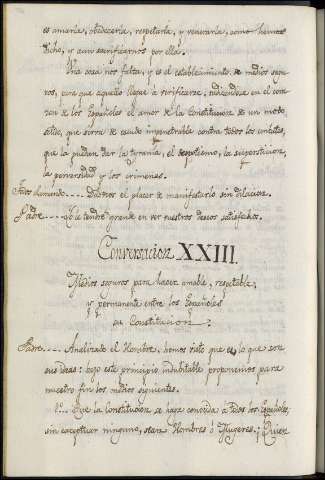 es amarla, obedecerla, respetarla, y venerarla, como hemos
dicho, y aun sacrificarnos por ella.
Una cosa nos falta, y es el establecimiento de medios segu-
ros, para que aquello llegue a verificarse, radicandose en el cora-
zon de los Españoles el amor de la Constitucion de un modo
solido, que sirva de escudo impenetrable contra todos los embates,
que la puedan dar la tyrania, el despotismo, la supersticion,
la perversidad y los crimenes.
Padre. Que tendre grande en ver nuestros deseos satisfechos.
Conversacion XXIII.
Medios seguros para hacer amable, respetable,
y permanente entre los Españoles
su Constitucion.
Padre. Analizado el Hombre, hemos visto que es lo que son
sus ideas: bajo este principio indubitable proponemos para
nuestro fin los medios siguientes.
1.º Que la Constitucion se haga conocida a todos los Españoles,
sin exceptuar ninguno, sean Hombres ó Mugeres. ¿Quien